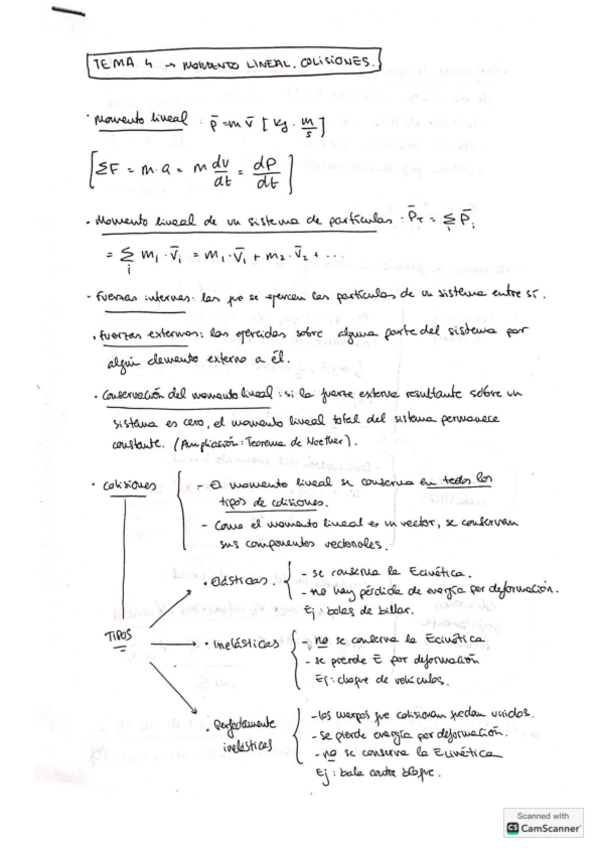 TEMA 4 → MOMENTO LINEAL. COLISIONES.
· Momento lineal : p̄ = m v̄ [kg · m/s]
[ΣF = m · a = m dv/dt = dP/dt]
· Momento lineal de un sistema de partículas : P̄_T = Σ_i P̄_i
= Σ_i m_i · v̄_i = m_1 · v̄_1 + m_2 · v̄_2 + ...
· Fuerzas internas: las que se ejercen las partículas de un sistema entre sí.
· Fuerzas externas: las ejercidas sobre alguna parte del sistema por
algún elemento externo a él.
· Conservación del momento lineal : si la fuerza externa resultante sobre un
sistema es cero, el momento lineal total del sistema permanece
constante. (Ampliación: Teorema de Noether).
· Colisiones
- El momento lineal se conserva en todos los
tipos de colisiones.
- Como el momento lineal es un vector, se conservan
sus componentes vectoriales.
TIPOS
· Elásticas.
- se conserva la Ecinética.
- no hay pérdida de energía por deformación.
Ej: bolas de billar.
· Inelásticas
- no se conserva la Ecinética.
- se pierde E por deformación
Ej: choque de vehículos.
· Perfectamente
inelásticas
- los cuerpos que colisionan quedan unidos.
- se pierde energía por deformación.
- no se conserva la Ecinética
Ej: bala contra bloque.
Scanned with
CS CamScanner